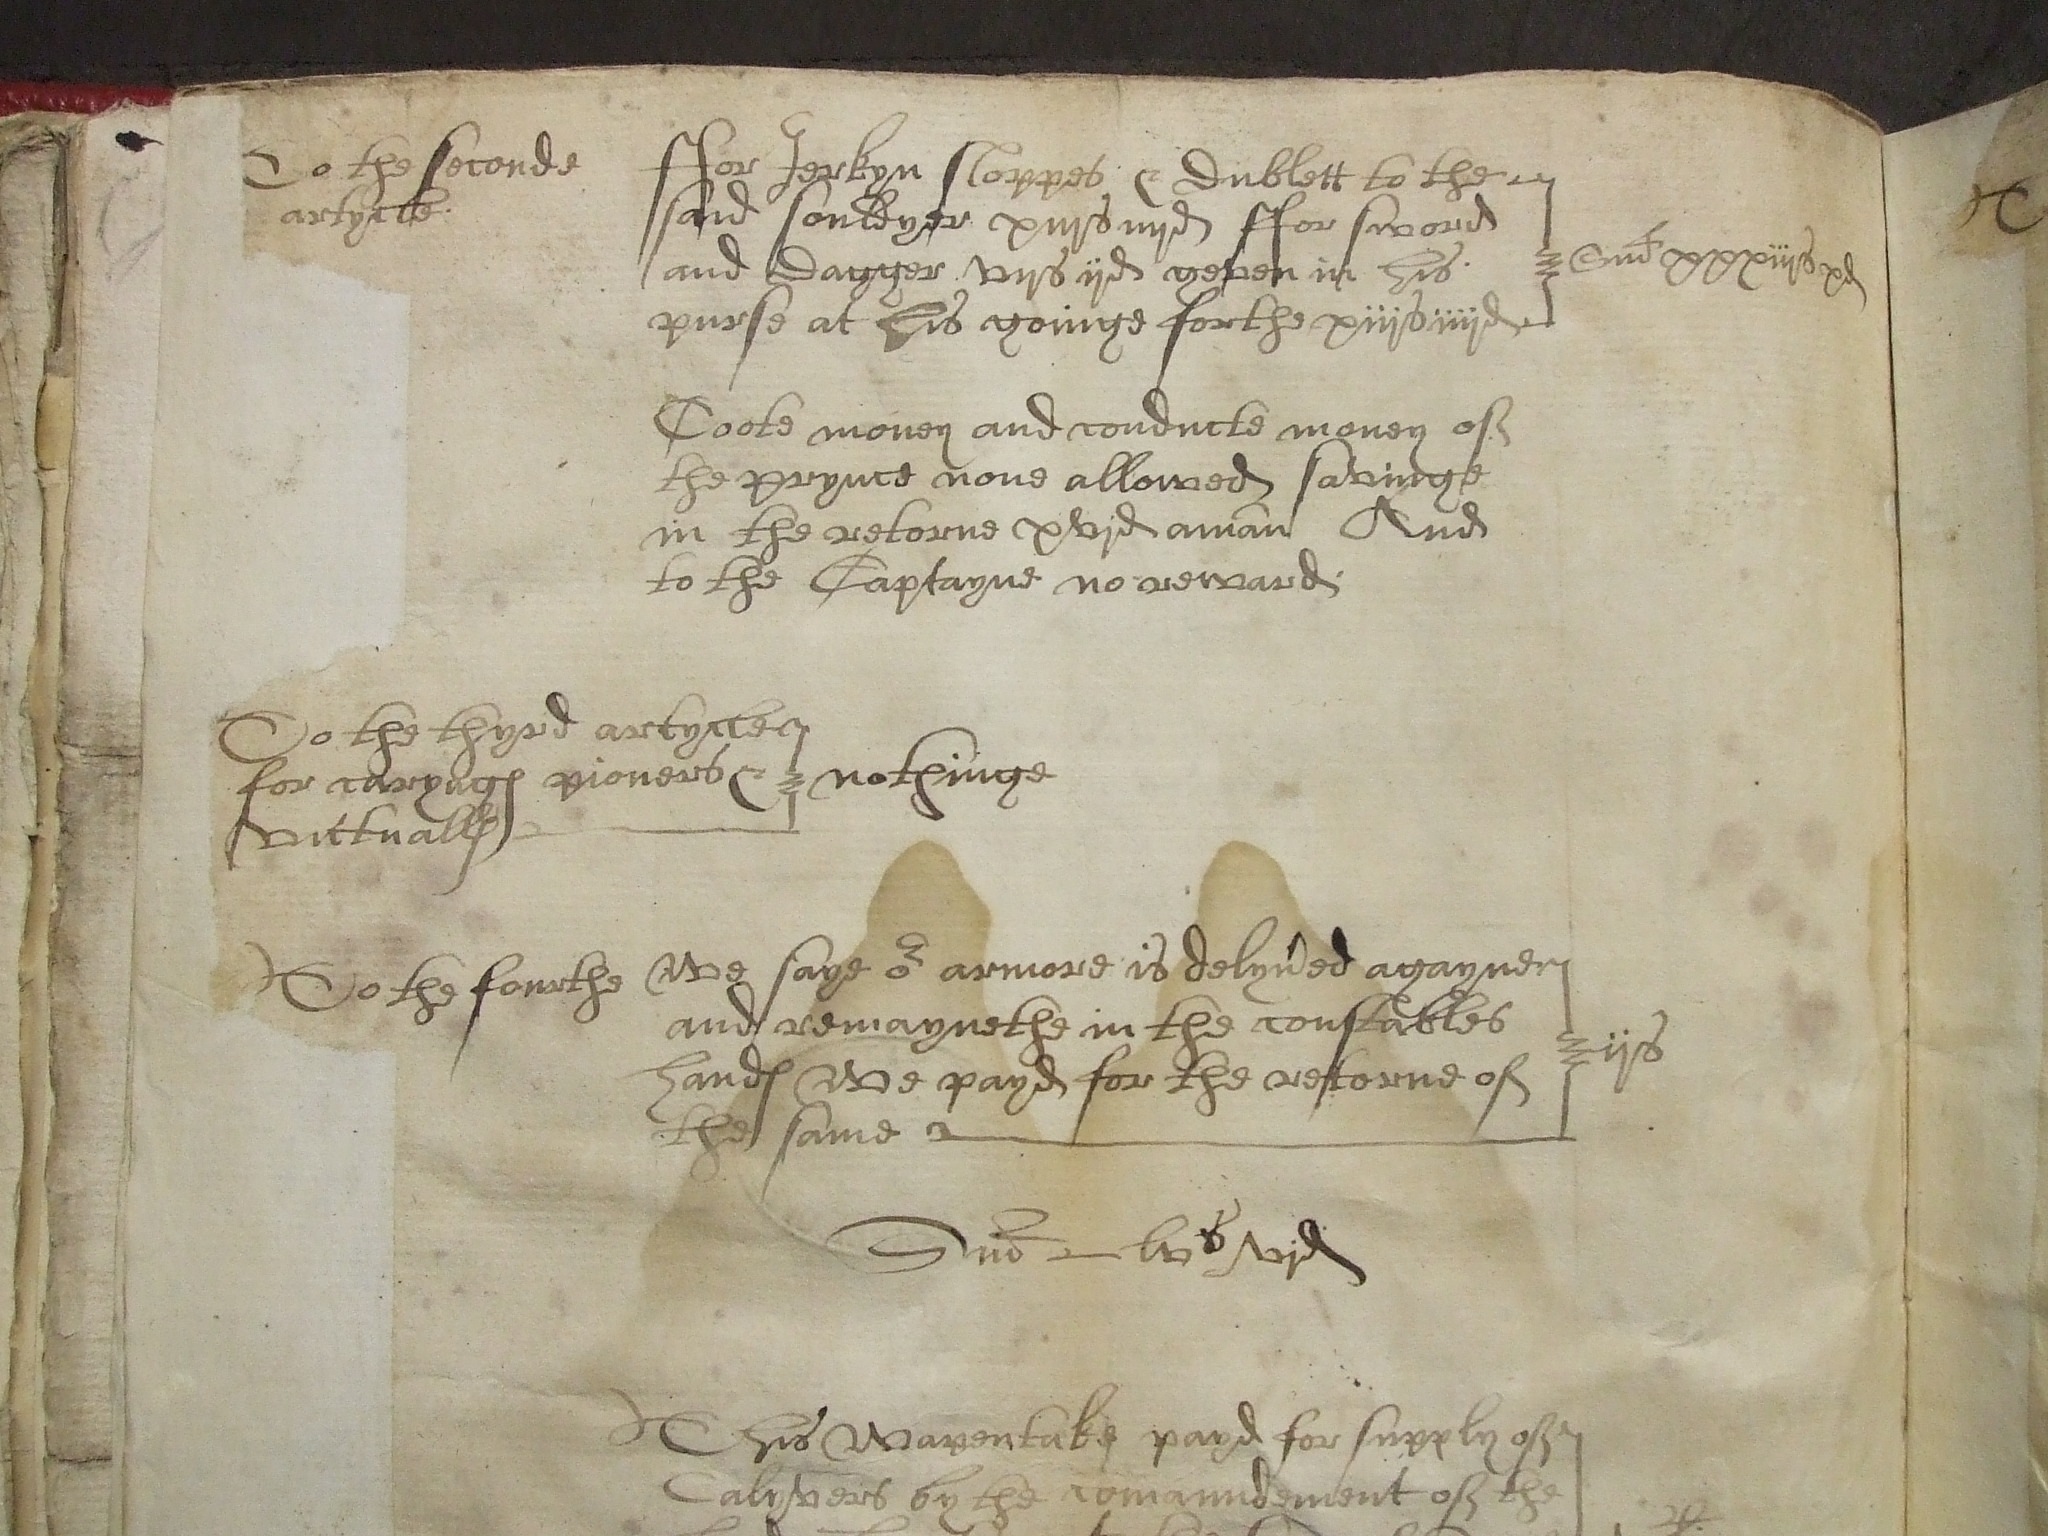 To the seconde
artycle
ffor Jerkyn sloppes & dublett to the
said souldyer xiijs iiijd ffor sword
and dagger vijs ijd geven in his
purse at his goinge forthe xiijs iiijd
Sum xxxiijs xd
Coote money and conducte money of
the prynce none allowed savinge
in the retorne xvjd a man And
to the Captayne no reward
To the thyrd artycle
for caryage pioners &
victualls
nothinge
To the fourthe
We saye or armore is delyved agayne
and remaynethe in the constables
hands We payd for the retorne of
the same
ijs
Sum lvs vjd
This Wapentake payd for supply of
Calyvers by the comanndement of the